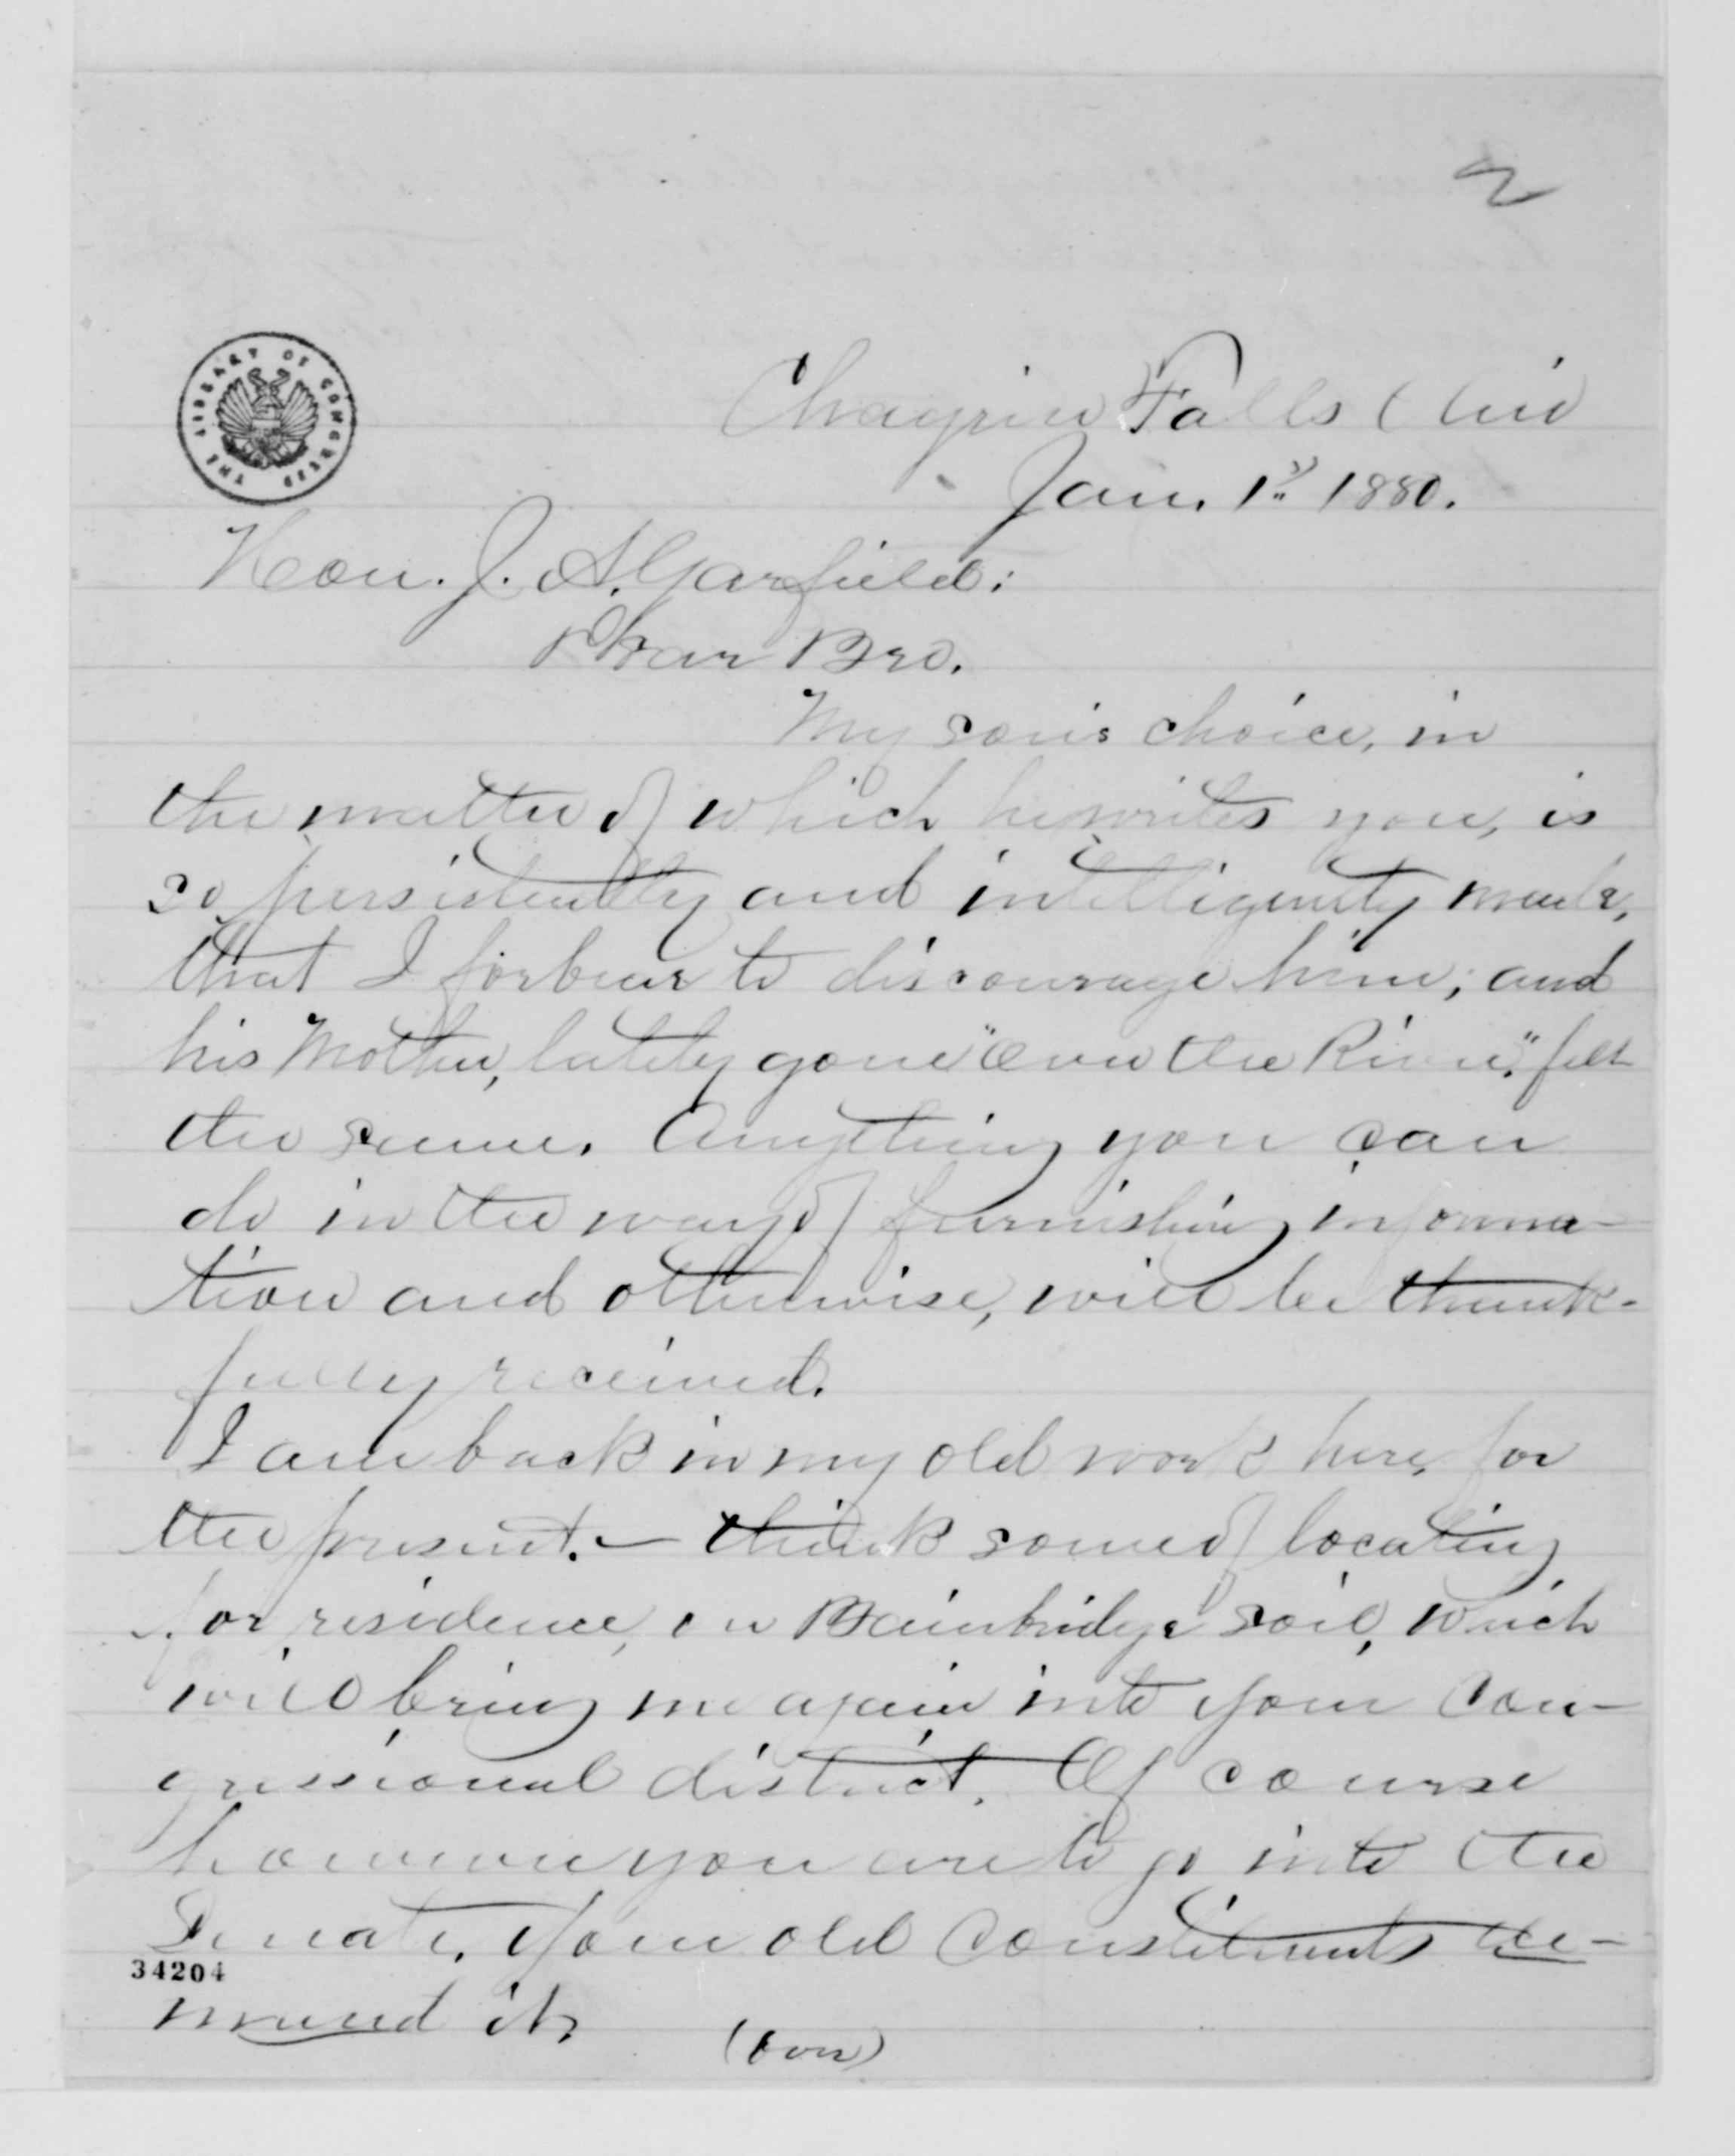 2
Chagrin Falls Ohio
Jan. 1st 1880.
THE LIBRARY OF CONGRESS
Hon. J. A. Garfield:
Dear Bro.
My son's choice, in
the matter of which he writes you, is
so persistently and intelligently made,
that I forbear to discourage him; and
his Mother, lately gone "over the River," felt
the same. Anything you can
do in the way of furnishing informa-
tion and otherwise, will be thank-
fully received.
I am back in my old work here, for
the present. — think some of locating
for residence, on Bainbridge soil, which
will bring me again into your Con-
gressional district. Of course
however you are to go into the
Senate. Your old constituents de-
mand it.
34204
(over)